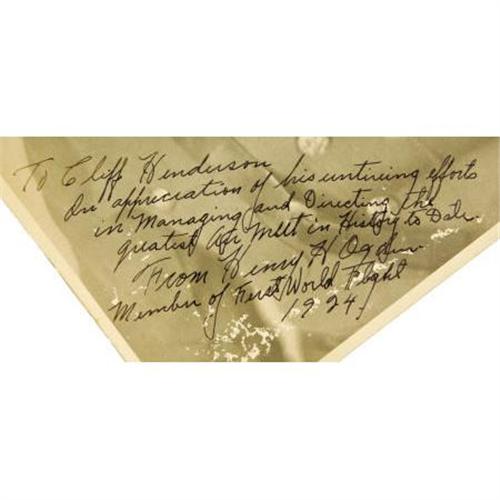 To Cliff Henderson
In appreciation of his untiring efforts
in Managing and Directing the
greatest Air Meet in History to Date.
From Henry H Ogden
Member of First World Flight
1924.